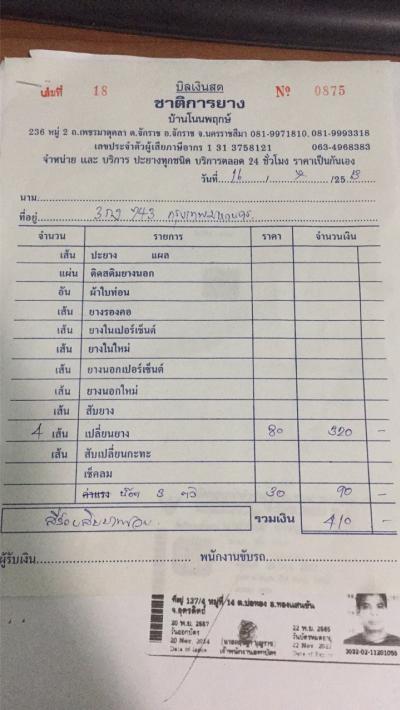 เล่มที่ 18 บิลเงินสด No 0875
ชาติการยาง
บ้านโนนพฤกษ์
236 หมู่ 2 ถ.เพชรมาตุคลา ต.จักราช อ.จักราช จ.นครราชสีมา 081-9971810, 081-9993318
เลขประจำตัวผู้เสียภาษีอากร 1 31 3758121 063-4968383
จำหน่าย และ บริการ ปะยางทุกชนิด บริการตลอด 24 ชั่วโมง ราคาเป็นกันเอง
วันที่ 16 / / 25
นาม
ที่อยู่ 743 กรุงเทพมหานคร
จำนวน รายการ ราคา จำนวนเงิน
เส้น ปะยาง แผล
แผ่น ติดสติมยางนอก
อัน ผ้าใบท่อน
เส้น ยางรองคอ
เส้น ยางในเปอร์เซ็นต์
เส้น ยางในใหม่
เส้น ยางนอกเปอร์เซ็นต์
เส้น ยางนอกใหม่
เส้น สับยาง
4 เส้น เปลี่ยนยาง 80 320 -
เส้น สับเปลี่ยนกะทะ
เช็คลม
ค่าแรง น๊อต 3 ตัว 30 90 -
สี่ร้อยสิบบาทถ้วน รวมเงิน 410 -
ผู้รับเงิน พนักงานขับรถ
ที่อยู่ 137/4 หมู่ที่ 14 ต.บ่อทอง อ.ทองแสนขัน
จ.อุตรดิตถ์
20 พ.ย. 2567
วันออกบัตร
20 Nov. 2024
Date of Issue
เจ้าพนักงานออกบัตร
22 พ.ย. 2565
วันบัตรหมดอายุ
Date of Expiry
3032-02-11201055